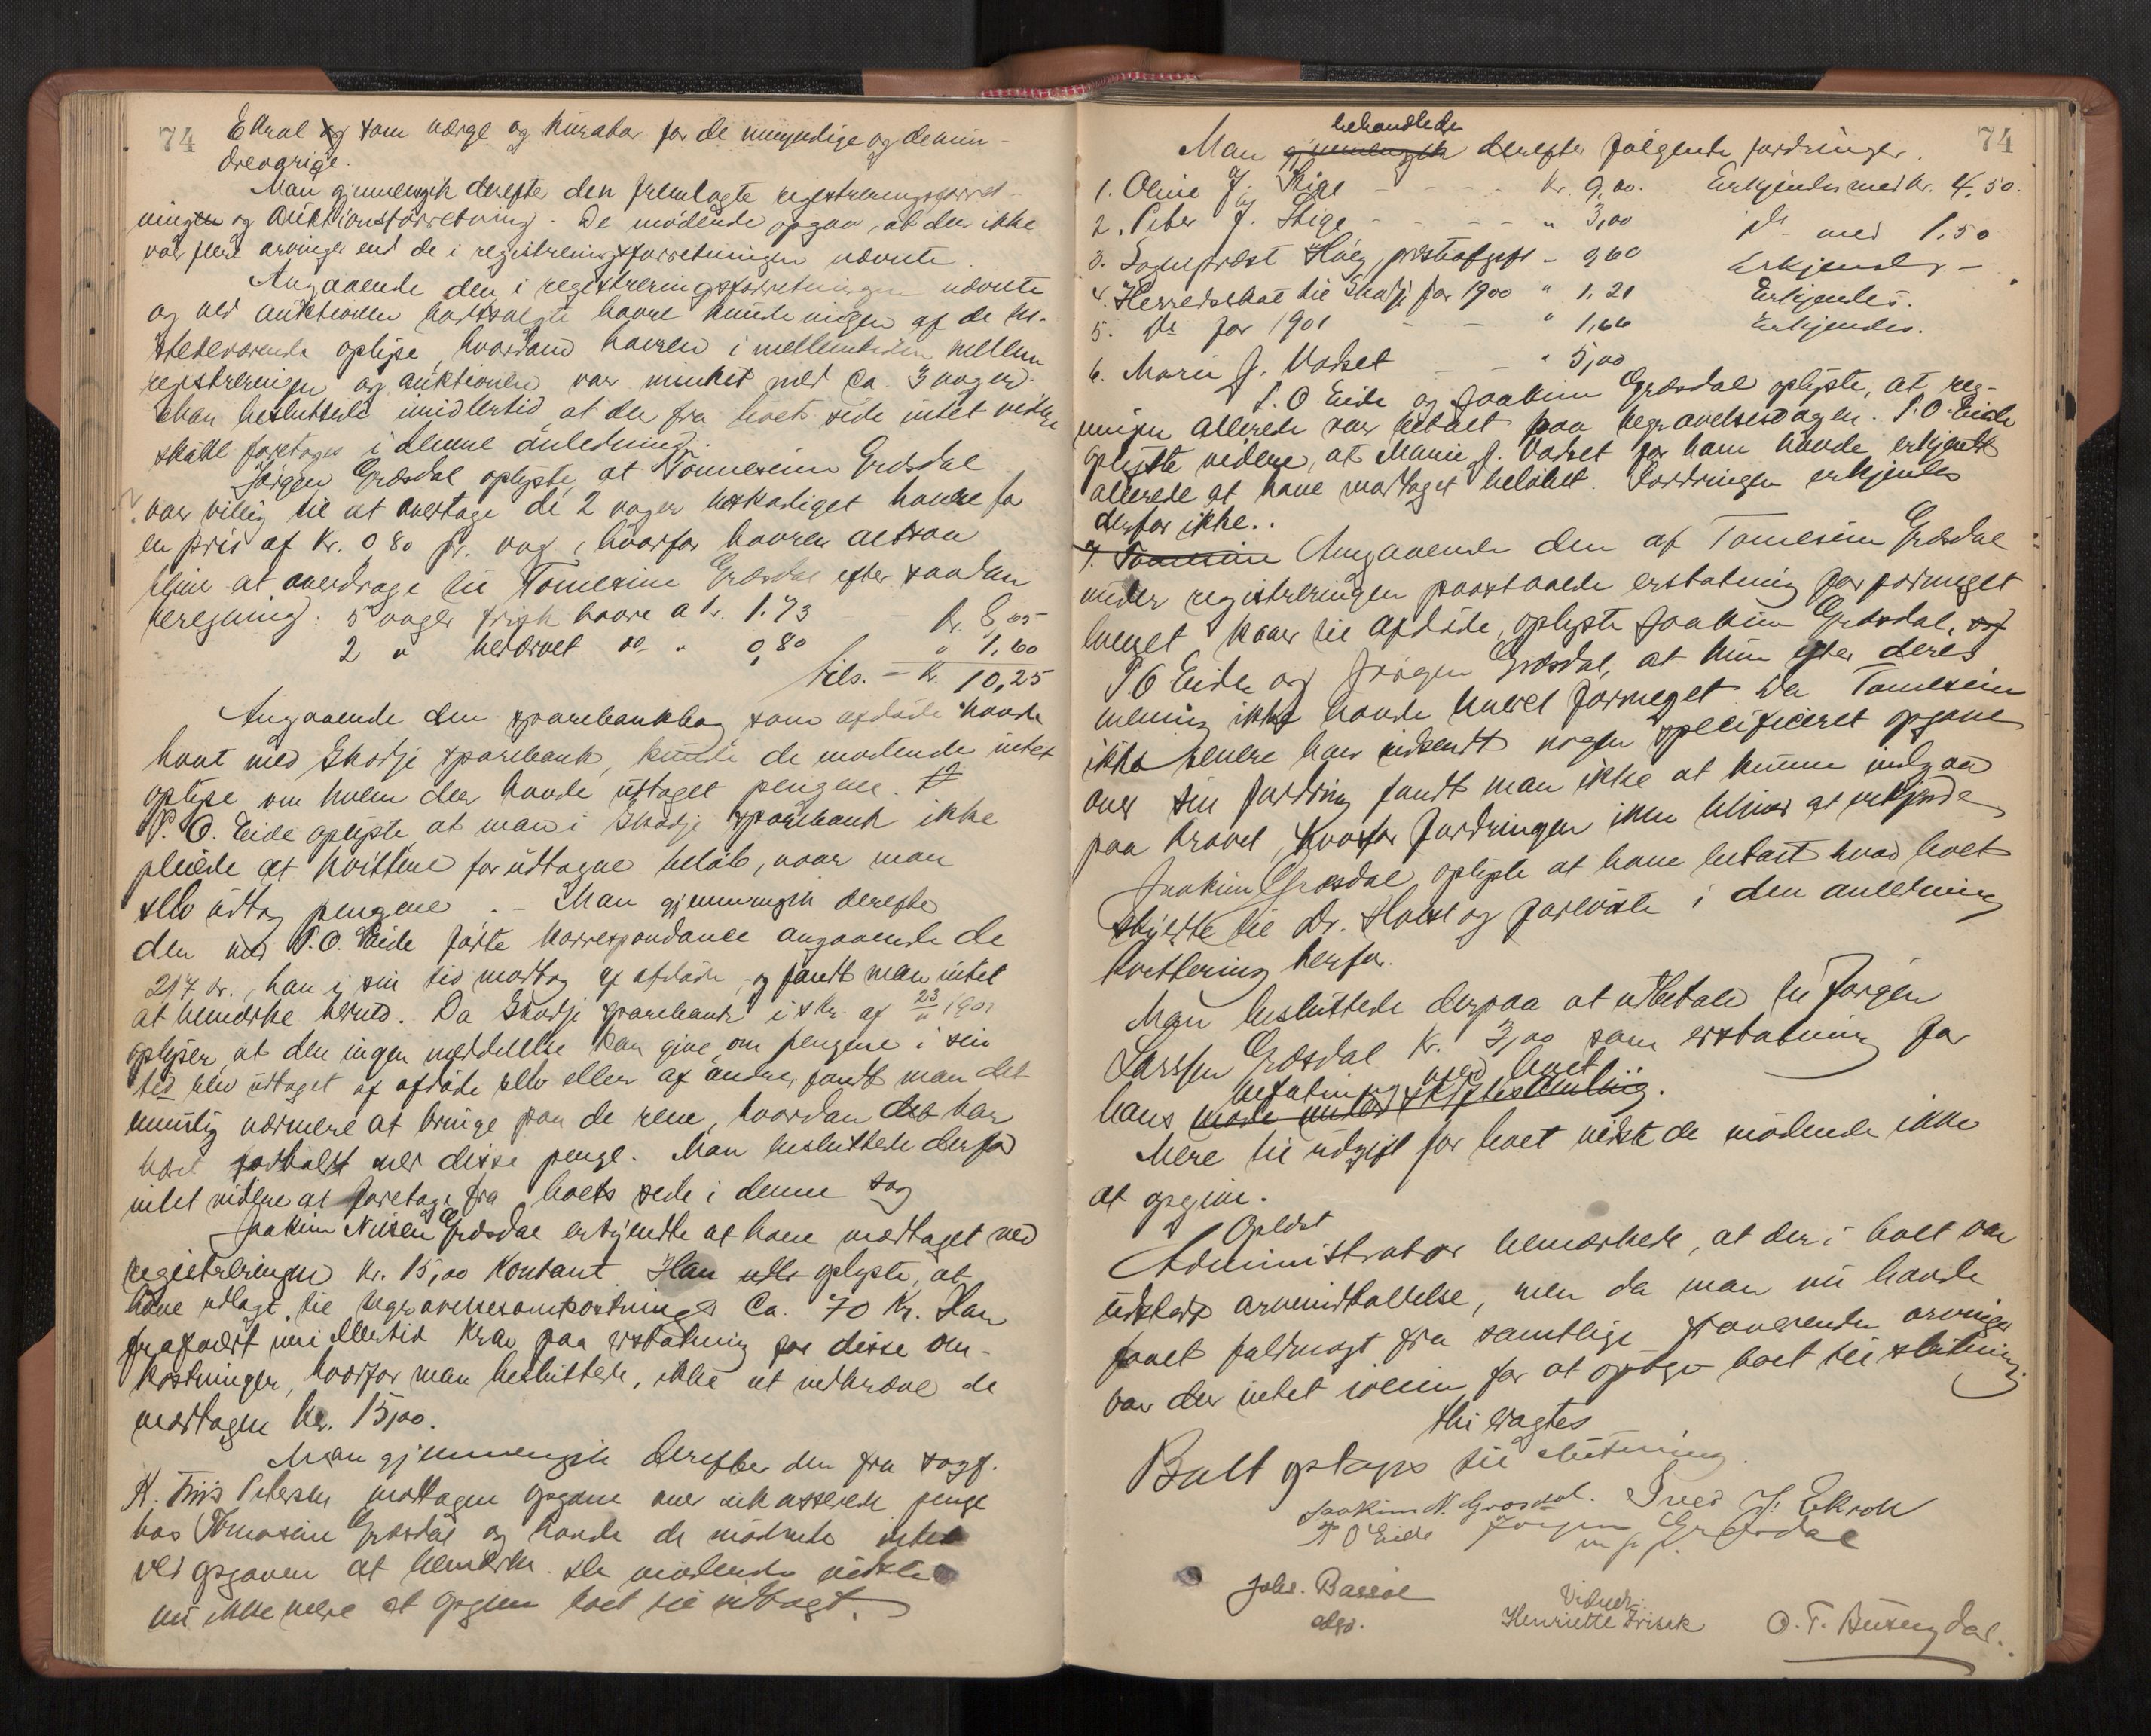 74
Ekrol og som værge og kurator for de umyndige og demin-
dreaarige.
Man gjennemgik derefter den fremlagte registreringsforret-
ningen og auktionsforretning. De mødende opgav, at der ikke
var flere arvinger end de i registreringsforretningen nævnte.
Angaaende den i registreringsforretningen nævnte
og ved auktionen bortsolgte havre kunde ingen af de til-
stedeværende oplyse, hvordan havren i mellemtiden mellem
registreringen og auktionen var minket med ca. 3 voger.
Man besluttede imidlertid, at der fra boets side intet videre
skulde foretages i denne anledning.
Jørgen Græsdal oplyste, at Tomesine Græsdal
var villig til at overtage de 2 voger beskadiget havre for
en pris af Kr. 0 80 pr. vog, hvorfor havren altsaa
bliver at overdrage til Tomesine Græsdal efter saadan
beregning: 5 voger frisk havre a kr. 1.73 - kr. 8,65
2 " bedærvet do " 0,80 " 1,60
tils. - kr. 10,25
Angaaende den sparebankbog, som afdøde havde
havt med Skodje sparebank, kunde de mødende intet
oplyse om hvem der havde uttaget pengene.
P. O. Eide oplyste, at man i Skodje sparebank ikke
pleiede at kvittere for udtagne beløb, naar man
selv udtog pengene. - Man gjennemgik derefter
den med P.O. Eide førte korrespondance angaaende de
217 kr., han i sin tid modtog af afdøde, og fandt man intet
at bemærke herved. Da Skodje sparebank i skr. af 23/11 1901
oplyser, at den ingen meddelelse kan give, om pengene i sin
tid blev udtaget af afdøde selv eller af andre, fandt man det
umulig nærmere at bringe paa de rene, hvordan det har
været forholdt med disse penge. Man besluttede derfor
intet videre at foretage fra boets side i denne sag
Joakim Nilsen Græsdal erkjendte at have modtaget ved
registreringen kr. 15,00 kontant. Han oplyste, at
have udlagt til begravelsesomkostninger ca. 70 Kr. Han
frafaldt imidlertid krav paa erstatning for disse om-
kostninger, hvorfor man besluttede, ikke at indkræve de
modtagne kr. 15,00.
Man gjennemgik derefter den fra sagf.
K. Friis Petersen modtagen opgave over inkasserede penge
hos Tomasine Græsdal og havde de mødende intet
ved opgaven at bemærke. De mødende vidste
nu ikke mere at opgive boet til indtægt.
74
behandlede
Man gjennemgik derefter følgende fordringer.
1. Oline J. Stige - - - - kr. 9,00. Erkjendes med kr. 4,50.
2. Peter J. Stige - - - - " 3,00 do med 1,50
3. Sogneprest Høeg, præstafgift - 9,60 Erkjendes -
4. Herredskat til Skodje for 1900 " 1,21 Erkjendes.
5. do for 1901 - - " 1,66 Erkjendes.
6. Marie J. Vadset - - " 5,00
P. O. Eide og Joakim Græsdal oplyste, at reg-
ningen allerede var betalt paa begravelsesdagen. P. O. Eide
oplyste videre, at Marie J. Vadset for ham havde erkjendt
allerede at have modtaget beløbet. Fordringen erkjendes
derfor ikke.
7. Tomesine Angaaende den af Tomesine Græsdal
under registreringen paastaaede erstatning for formeget
leveret kaar til afdøde, oplyste Joakim Græsdal,
P O Eide og Jørgen Græsdal, at hun efter deres
mening ikke havde leveret formeget. Da Tomesine
ikke senere har indsendt nogen specificeret opgave
over sin fordring fandt man ikke at kunne indgaa
paa kravet, hvorfor fordringen ikke bliver at erkjende
Joakim Græsdal oplyste at have betalt hvad boet
skyldte til Dr. Holst og foreviste i den anledning
kvittering herfor.
Man besluttede derpaa at udbetale til Jørgen
Larssen Græsdal kr. 3,00 som erstatning for
befatning med boet
hans møde under skiftesamling.
Mere til udgift for boet vidste de mødende ikke
at opgive.
Oplæst
Administrator bemærkede, at der i boet var
udstedt arveindkaldelse, men da man nu havde
faaet fuldmagt fra samtlige fraværende arvinger
var der intet iveien for at optage boet til slutning.
thi eragtes
Boet optages til slutning.
Joakim N. Græsdal. Sved J. Ekroll
P O Eide Jørgen Græsdal
m. f. p.
Johs. Bassøe
edsv.
Vidner:
Henriette Frisak O. T. Busengdal.